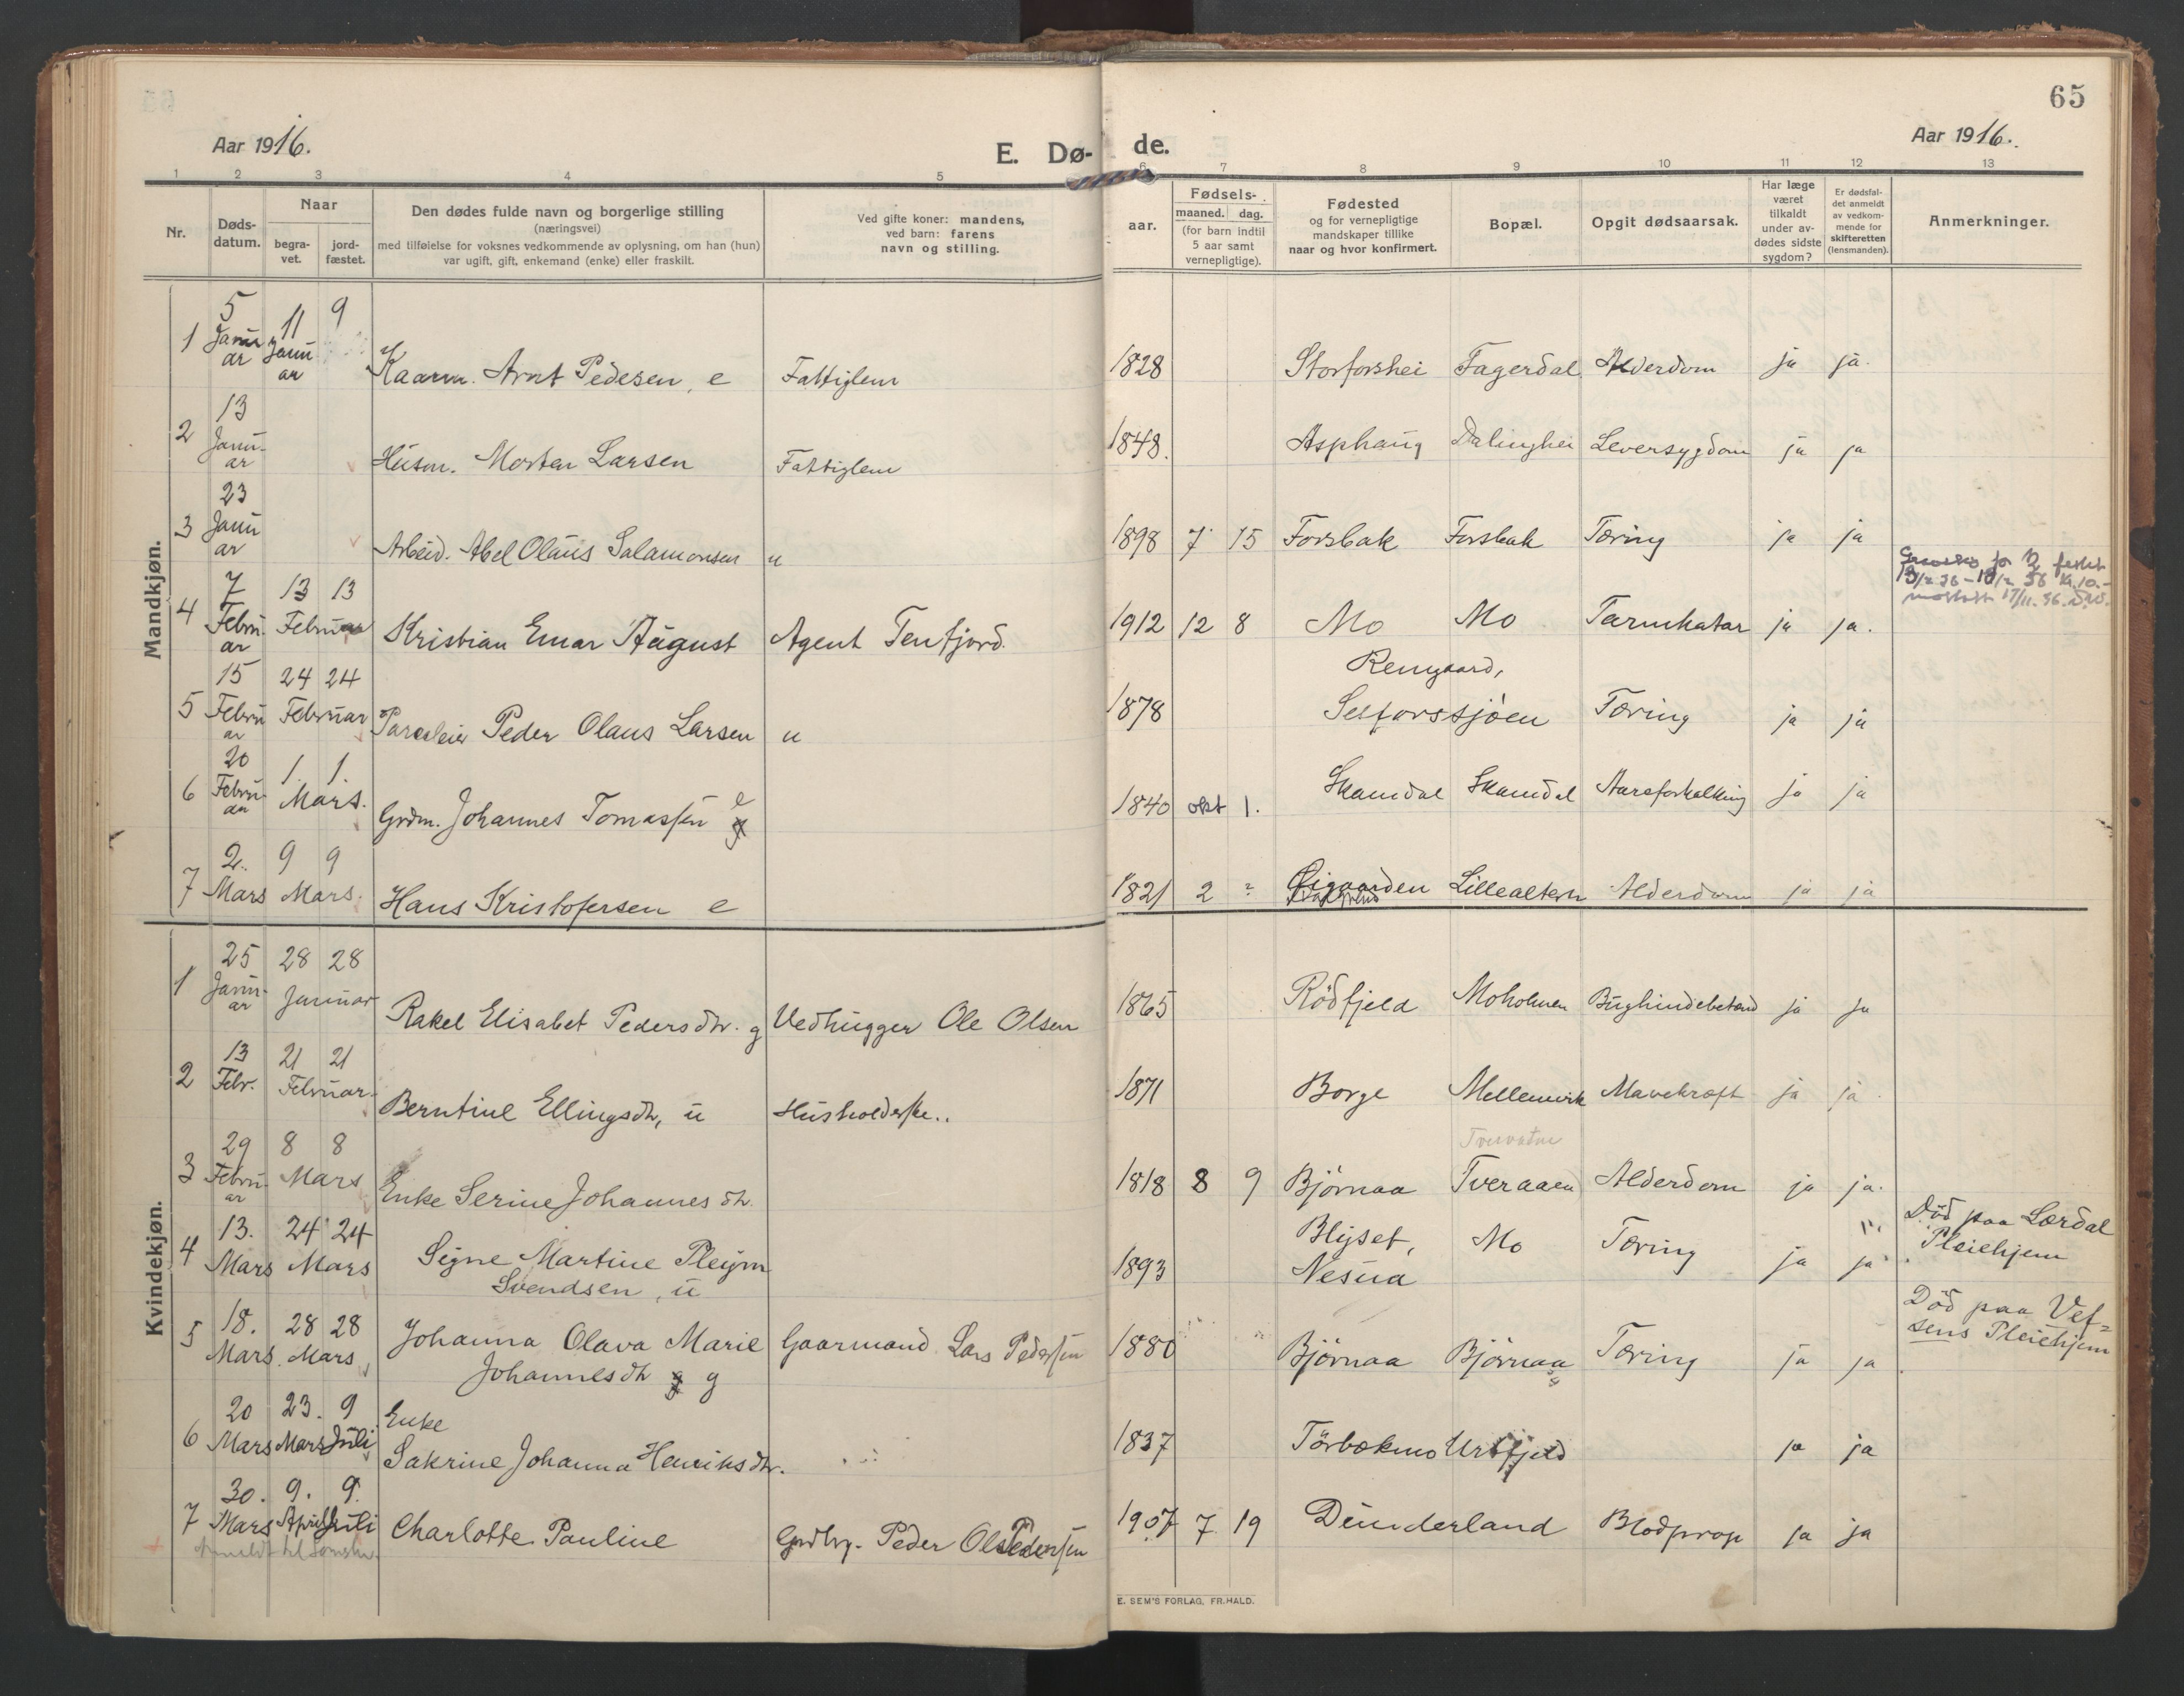 65
Aar 1916.
E. Dø-
de.
Aar 1916.
1 2 3 4 5 6 7 8 9 10 11 12 13
Nr.
Døds-
datum.
Naar
begra-
vet.
jord-
fæstet.
Den dødes fulde navn og borgerlige stilling
(næringsvei)
med tilføielse for voksnes vedkommende av oplysning, om han (hun)
var ugift, gift, enkemand (enke) eller fraskilt.
Ved gifte koner: mandens,
ved barn: farens
navn og stilling.
aar.
Fødsels-
maaned. dag.
(for barn indtil
5 aar samt
vernepligtige).
Fødested
og for vernepligtige
mandskaper tillike
naar og hvor konfirmert.
Bopæl.
Opgit dødsaarsak.
Har læge
været
tilkaldt
under av-
dødes sidste
sygdom?
Er dødsfal-
det anmeldt
av vedkom-
mende for
skifteretten
(lensmanden).
Anmerkninger.
Mandkjøn.
1 5 Januar 11 Januar 9 Kaarm. Arnt Pedesen, e Fattiglem 1828 Storforshei Fagerdal Alderdom ja ja.
2 13 Januar Husm. Morten Larsen Fattiglem 1848. Asphaug Dalinghei Leversygdom ja ja
3 23 Januar Arbeid. Abel Olaus Salamonsen u 1898 7 15 Forsbak Forsbak Tæring ja ja
4 7 Februar 13 13 Februar Kristian Einar August Agent Tenfjord. 1912 12 8 Mo Mo Tarmkatar ja ja.
5 15 Februar 24 24 Februar Parcelleier Peder Olaus Larsen u 1878 Remgaard, Selforssjøen Tæring ja ja
6 20 Februar 1. 1. Mars. Grdm. Johannes Tomassen e 1840 okt 1. Skamdal Skamdal Aareforkalkning ja ja
7 2. Mars 9 9 Mars. Hans Kristofersen e 1821 2 ? Øigaarden Lillealteren Alderdom ja ja
Kvindekjøn.
1 25 Januar 28 28 Januar Rakel Elisabet Pedersdtr. g Vedhugger Ole Olsen 1865 Rödfjeld Moholmen Bughindebetænd ja ja
2 13 Febr. 21 21 Februar Berntine Ellingsdtr, u Husholderske.. 1871 Borge Mellemvik Mavekræft ja ja.
Tvervatne
3 29 Februar 8 8 Mars Enke Serine Johannesdtr. 1818 8 9 Björnaa Tveraaen Alderdom ja ja.
4 13. Mars 24 24 Mars Signe Martine Pleym
Svendsen, u 1893 Blyset, Nesna Mo Tæring ja ja Död paa Lærdal
Pleiehjem
5 18. Mars 28 28 Mars Johanna Olava Marie
Johannesdtr g Gaarmand Lars Pedersen 1880 Björnaa Björnaa Tæring ja ja Död paa Vef=
sens Pleiehjem
6 20 Mars 23. Mars 9 Juli Enke
Sakrine Johanna Henriksdtr. 1837 Törbækmo Urtfjeld ja ja
7 30. Mars 9. April 9. Juli Charlotte Pauline Grdbr. Peder Olsen Pedersen 1907 7 19 Dunderland Blodprop ja ja
E. SEM'S FORLAG, FR.HALD.